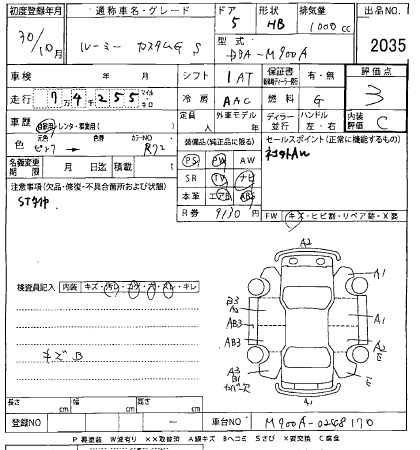 初度登録年月 通称車名・グレード ドア 形状 排気量 出品NO.
30/10月 ルーミー カスタムG S 5 HB 1000 cc 2035
型式 DBA-M900A
車検 年 月 シフト IAT 保証書 有・無 評価点
走行 7万4千255 マイル キロ 冷房 AAC 燃料 G 3
車歴 自家用・レンタ・事業用( ) 定員 外車モデル年 ディーラー 並行 ハンドル 左・右 内装 C
色 元色 色替 カラーNO R72 装備品(純正品に限る) セールスポイント(正常に機能するもの)
PS PW AW
名義変更期限 月 日迄 積載 ( ) SR TV ナビ
注意事項(欠品・修復・不具合箇所および状態) 本革 エアB ABS
R券 9130 FW キズ・ヒビ割・リペア跡・X要
A2
A1
検査員記入 内装 キズ・汚レ・コゲ・穴・スレ・キレ
B3 A2
AB3 A1
AB3
キズB A2 E
A3 B1 カバーズレ E
A1
長さ cm 幅 cm 高さ cm
登録NO － 車台NO M900A-0258170
P要塗装 W波有り XX取替済 A線キズ Bヘコミ Sさび X要交換 C腐食